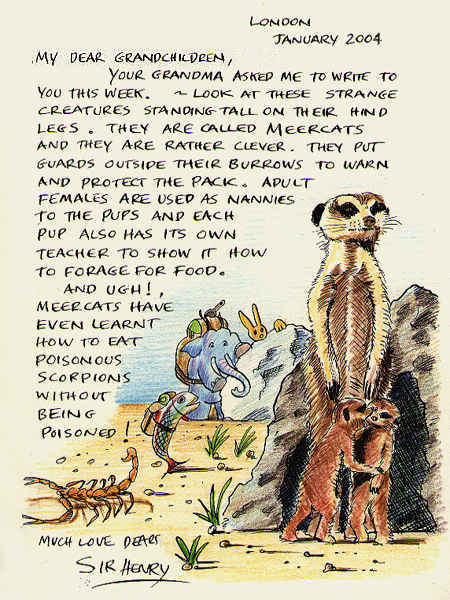 LONDON
JANUARY 2004
MY DEAR GRANDCHILDREN,
YOUR GRANDMA ASKED ME TO WRITE TO
YOU THIS WEEK. ~ LOOK AT THESE STRANGE
CREATURES STANDING TALL ON THEIR HIND
LEGS. THEY ARE CALLED MEERCATS
AND THEY ARE RATHER CLEVER. THEY PUT
GUARDS OUTSIDE THEIR BURROWS TO WARN
AND PROTECT THE PACK. ADULT
FEMALES ARE USED AS NANNIES
TO THE PUPS AND EACH
PUP ALSO HAS ITS OWN
TEACHER TO SHOW IT HOW
TO FORAGE FOR FOOD.
AND UGH!,
MEERCATS HAVE
EVEN LEARNT
HOW TO EAT
POISONOUS
SCORPIONS
WITHOUT
BEING
POISONED!
MUCH LOVE DEARS
SIR HENRY